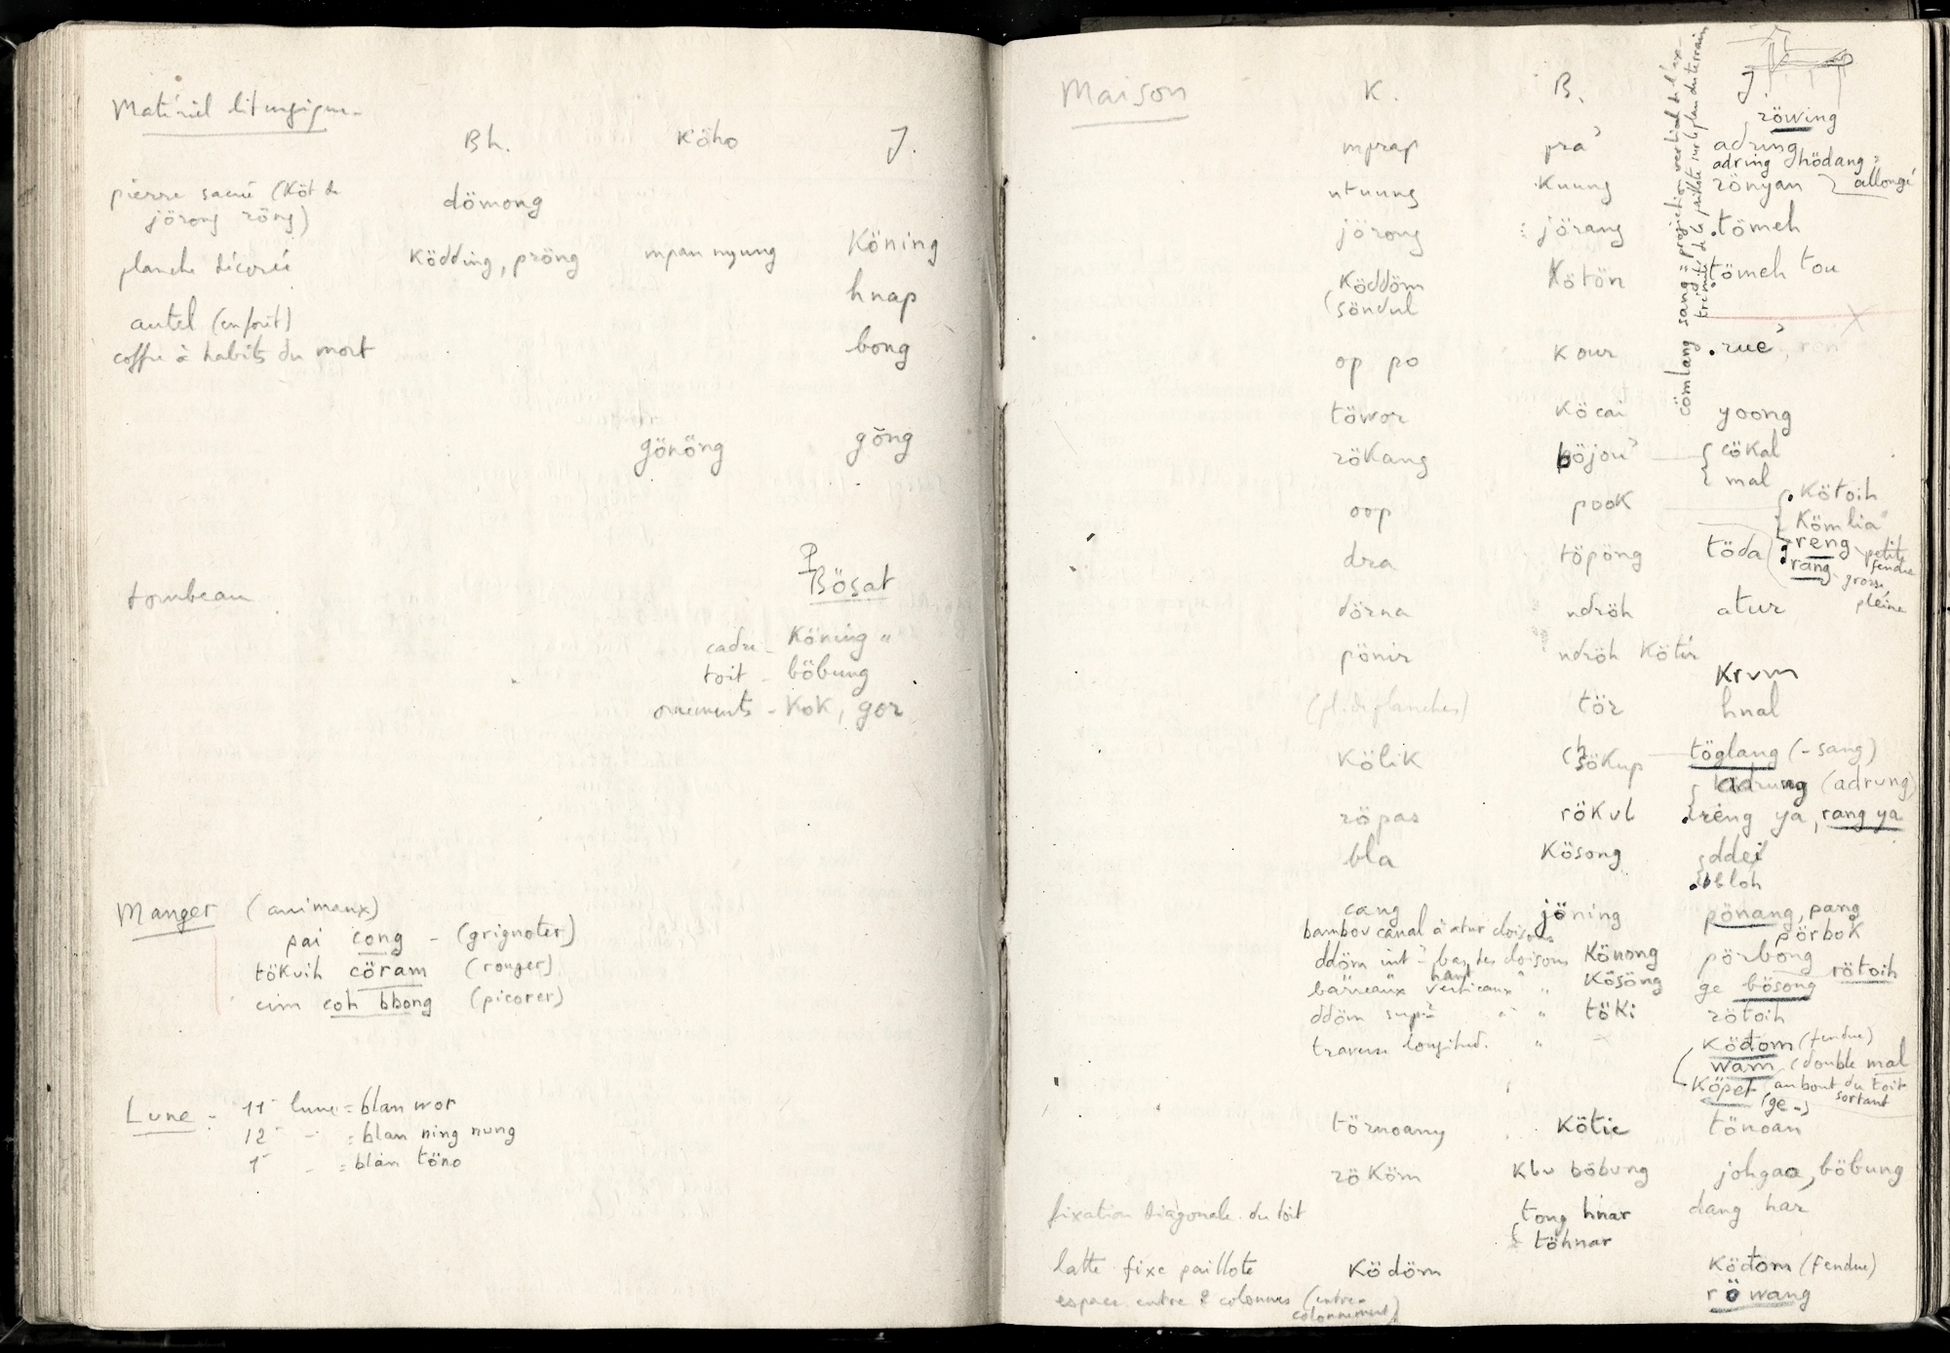 Matériel liturgique
Bh. Köho J.
pierre sacrée (Köt de
jörong röng) dömong
planche décorée Ködding, pröng mpan nyung Köning
autel (en forêt) hnap
coffre à habits du mort bong
gönöng göng
tombeau Bösat
cadre - Köning "
toit - böbung
ornements - Kok, gor
Manger (animaux)
pai cong - (grignoter)
tökuih cöram (ronger)
cim coh bbong (picorer)
Lune : 11e lune = blan wor
12e - = blan ning nung
1e - = blan töno
Maison K. B. J.
cömlang sang = projection verticale de l'ex-
trémité de la paillote sur le plan du terrain
röwing
mprap pra' adring
adring hödang =
ntuung Kuung rönyan } allongé
jörong jörang tömeh
Köddöm Kötön tömeh tou
(söndul
op po Kour rue
töwor Köcai yoong
rökang böjou' { cökal
mal
oop pook { Kötoih
Kömlia
dra töpöng töda reng petite
fendue
rang grosse
pleine
dörna ndröh atur
pönir ndröh Kötir
Krum
(pl. de planches) tör hnal
Kölik (hsökup töglang (- sang)
adrung (adrung)
röpas rökul reng ya, rang ya
bla Kösong ddei
bloh
cang jöning pönang, pang
bambou canal à atur cloisons pörbok
ddöm inf. bas des cloisons Könong pörbong
rötoih
barreaux verticaux " Kösöng ge bösong
haut
ddöm supr " " töki rötoih
traverse longitud. " Ködom (fendue)
wam (double mal
Köpet (au bout du toit
sortant
(ge -)
törnoang Kötie tönoan
rököm Klu böbung johgaa, böbung
fixation diagonale du toit tong hnar dang har
töhnar
latte fixe paillote Ködöm Ködom (fendue)
espace entre 2 colonnes (entre- röwang
colonnement)